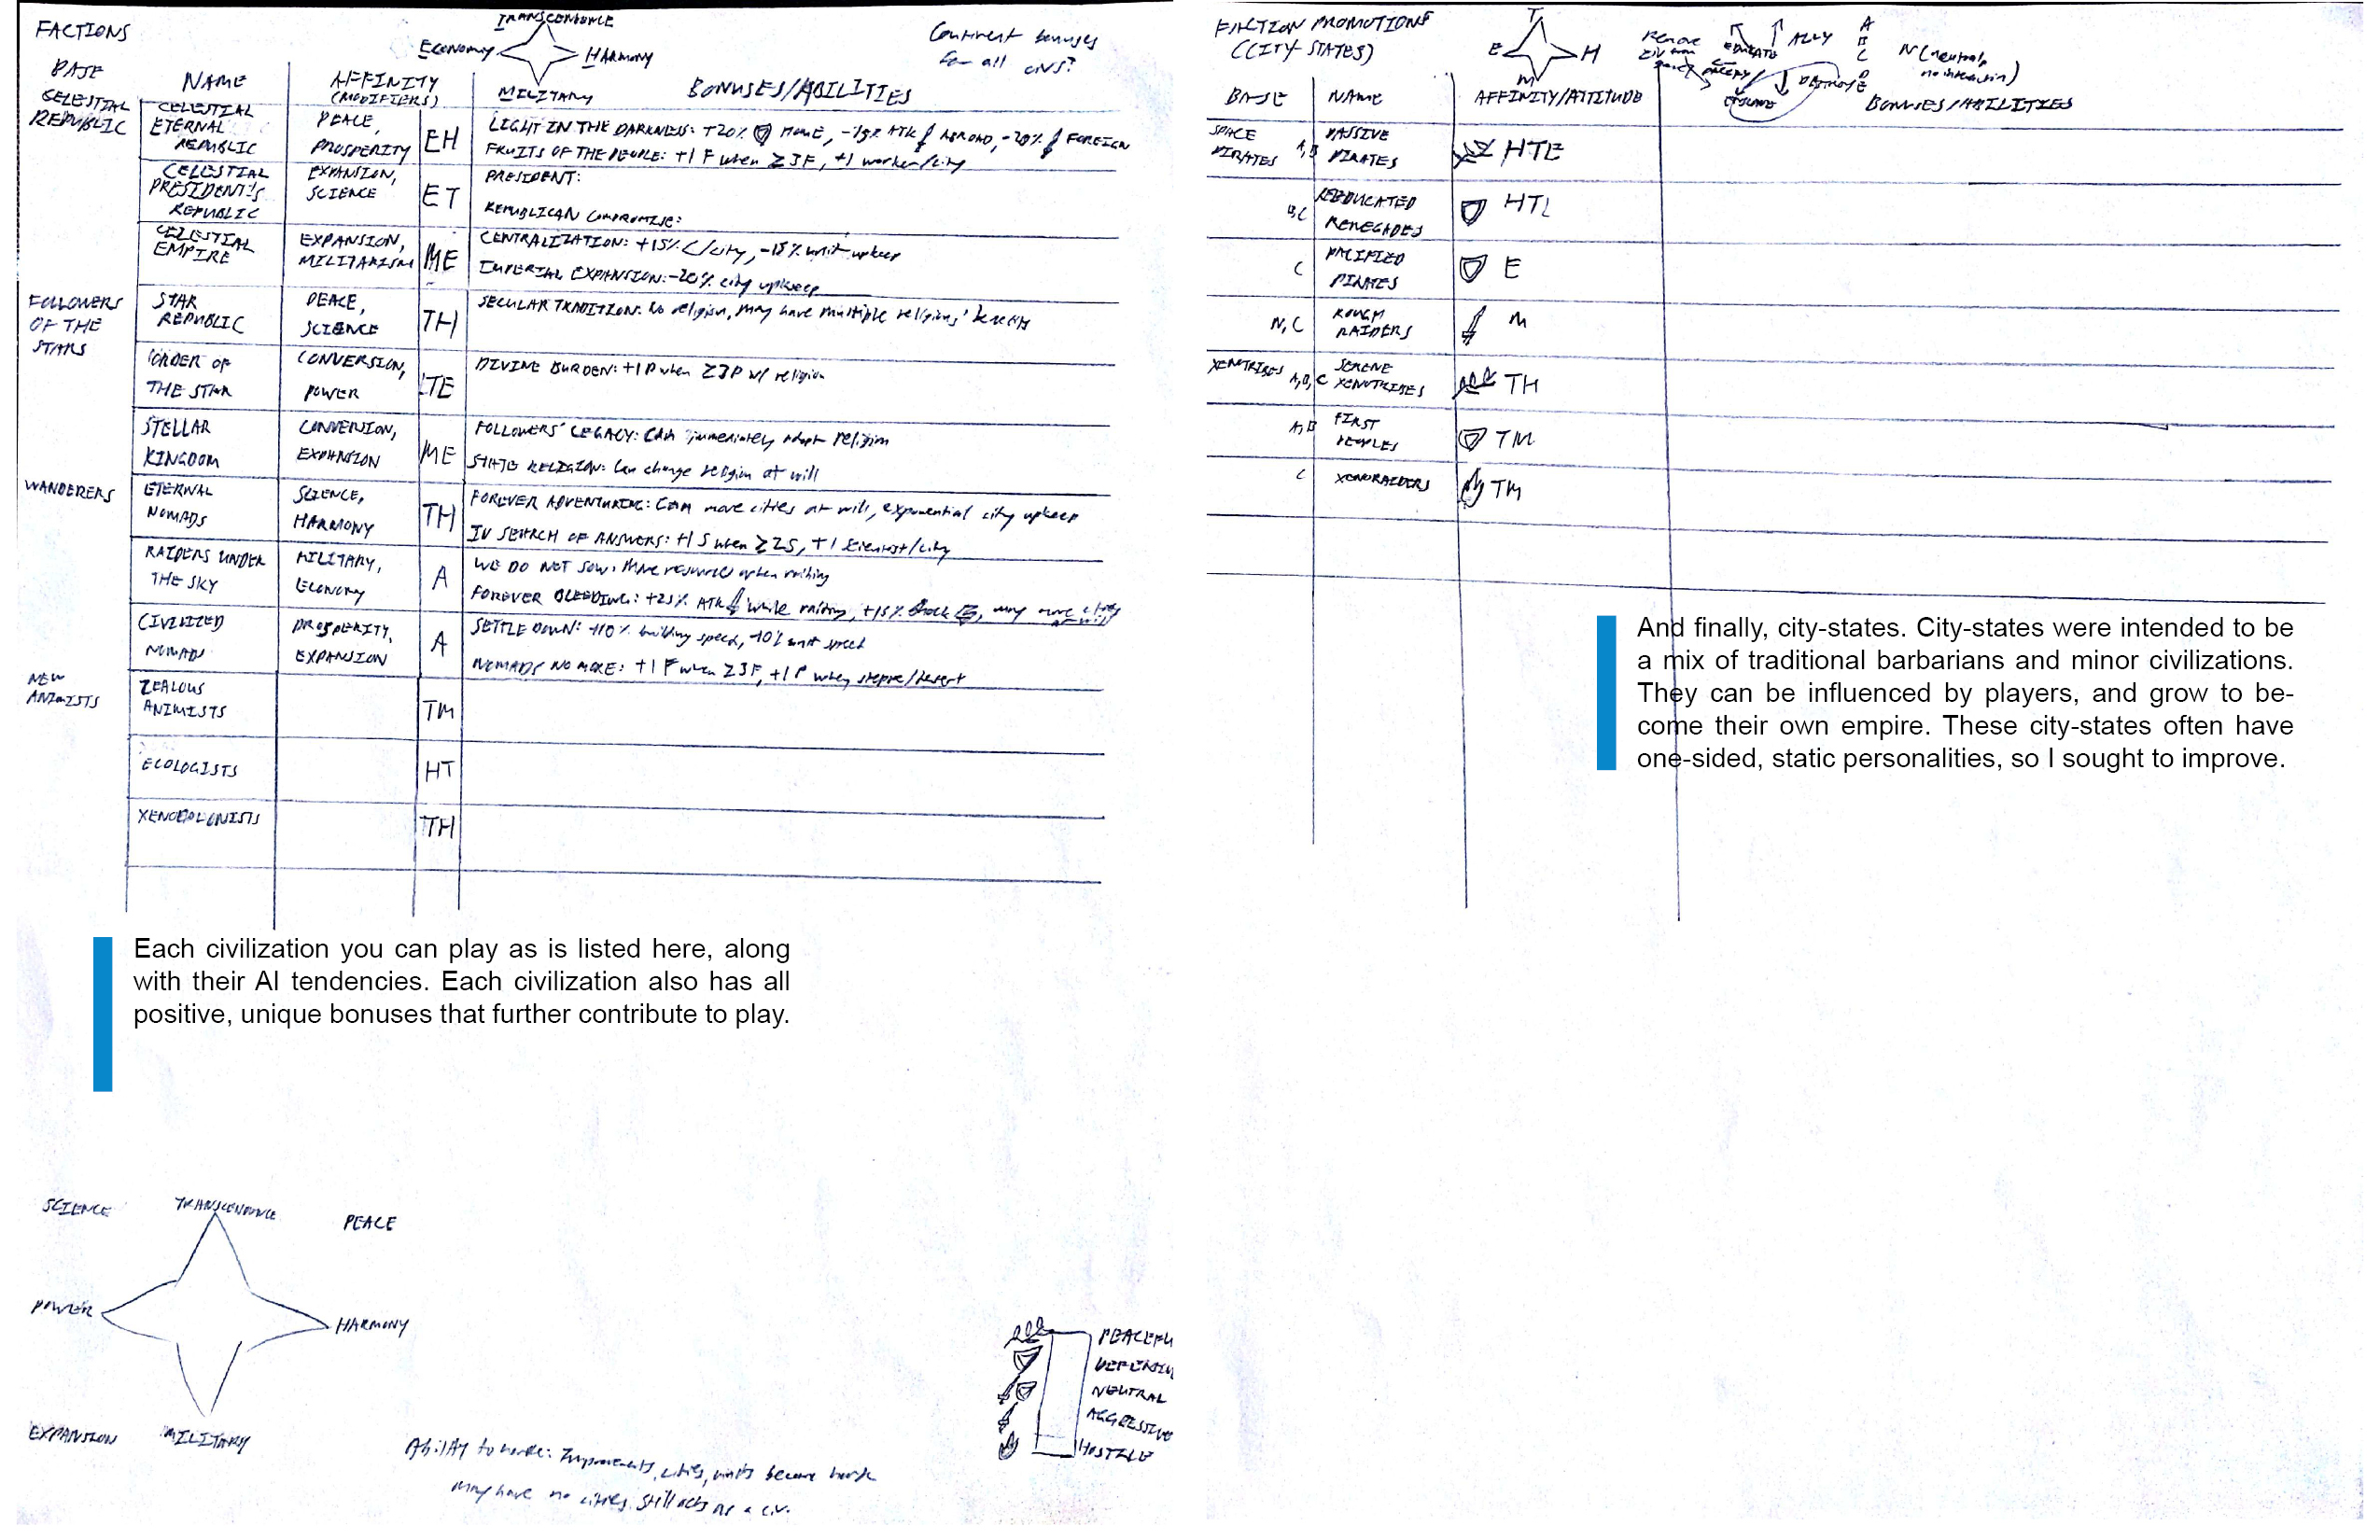 FACTIONS
TRANSCENDENCE
ECONOMY
HARMONY
MILITARY
Continent bonuses
for all civs?
BASE
NAME
AFFINITY
(MODIFIERS)
BONUSES/ABILITIES
CELESTIAL
REPUBLIC
CELESTIAL
ETERNAL
REPUBLIC
PEACE,
PROSPERITY
EH
LIGHT IN THE DARKNESS: +20% HOME, -15% ATK ABROAD, -20% FOREIGN
FRUITS OF THE PEOPLE: +1 F when ≥3F, +1 worker/city
CELESTIAL
PRESIDENT'S
REPUBLIC
EXPANSION,
SCIENCE
ET
PRESIDENT:
REPUBLICAN COMPROMISE:
CELESTIAL
EMPIRE
EXPANSION,
MILITARISM
ME
CENTRALIZATION: +15% C/city, -15% unit upkeep
IMPERIAL EXPANSION: -20% city upkeep
FOLLOWERS
OF THE
STARS
STAR
REPUBLIC
PEACE,
SCIENCE
TH
SECULAR TRADITION: No religion, may have multiple religions' benefits
ORDER OF
THE STAR
CONVERSION,
POWER
TE
DIVINE BURDEN: +1 P when ≥3P w/ religion
STELLAR
KINGDOM
CONVERSION,
EXPANSION
ME
FOLLOWERS' LEGACY: Can immediately adopt religion
STATE RELIGION: Can change religion at will
WANDERERS
ETERNAL
NOMADS
SCIENCE,
HARMONY
TH
FOREVER ADVENTURING: Can move cities at will, exponential city upkeep
IN SEARCH OF ANSWERS: +1 S when ≥2S, +1 scientist/city
RAIDERS UNDER
THE SKY
MILITARY,
ECONOMY
A
WE DO NOT SOW: More resources when raiding
FOREVER BLEEDING: +25% ATK while raiding, +15% may move cities
at will
CIVILIZED
NOMADS
PROSPERITY,
EXPANSION
A
SETTLE DOWN: +10% building speed, -10% unit speed
NOMADS NO MORE: +1 F when ≥3F, +1 P when steppe/desert
NEW
ANIMISTS
ZEALOUS
ANIMISTS
TM
ECOLOGISTS
HT
XENOCOLONISTS
TH
Each civilization you can play as is listed here, along
with their AI tendencies. Each civilization also has all
positive, unique bonuses that further contribute to play.
SCIENCE
TRANSCENDENCE
PEACE
POWER
HARMONY
EXPANSION
MILITARY
Ability to horde: Improvements, cities, units become horde
may have no cities. Still acts as a civ.
PEACEFU
DEFENSIV
NEUTRAL
AGGRESSIVE
HOSTILE
FACTION PROMOTIONS
(CITY-STATES)
T
E
H
M
ALLY
EDUCATE
DESTROY
A
B
C
D
E
N (neutral,
no interaction)
BASE
NAME
AFFINITY/ATTITUDE
BONUSES/ABILITIES
SPACE
PIRATES
A,B
PASSIVE
PIRATES
HTE
B,C
REEDUCATED
RENEGADES
HTE
C
PACIFIED
PIRATES
E
N,C
ROUGH
RAIDERS
M
XENOTRIBES
A,B,C
SERENE
XENOTRIBES
TH
A,B
FIRST
PEOPLES
TM
C
XENORAIDERS
TM
And finally, city-states. City-states were intended to be
a mix of traditional barbarians and minor civilizations.
They can be influenced by players, and grow to be-
come their own empire. These city-states often have
one-sided, static personalities, so I sought to improve.